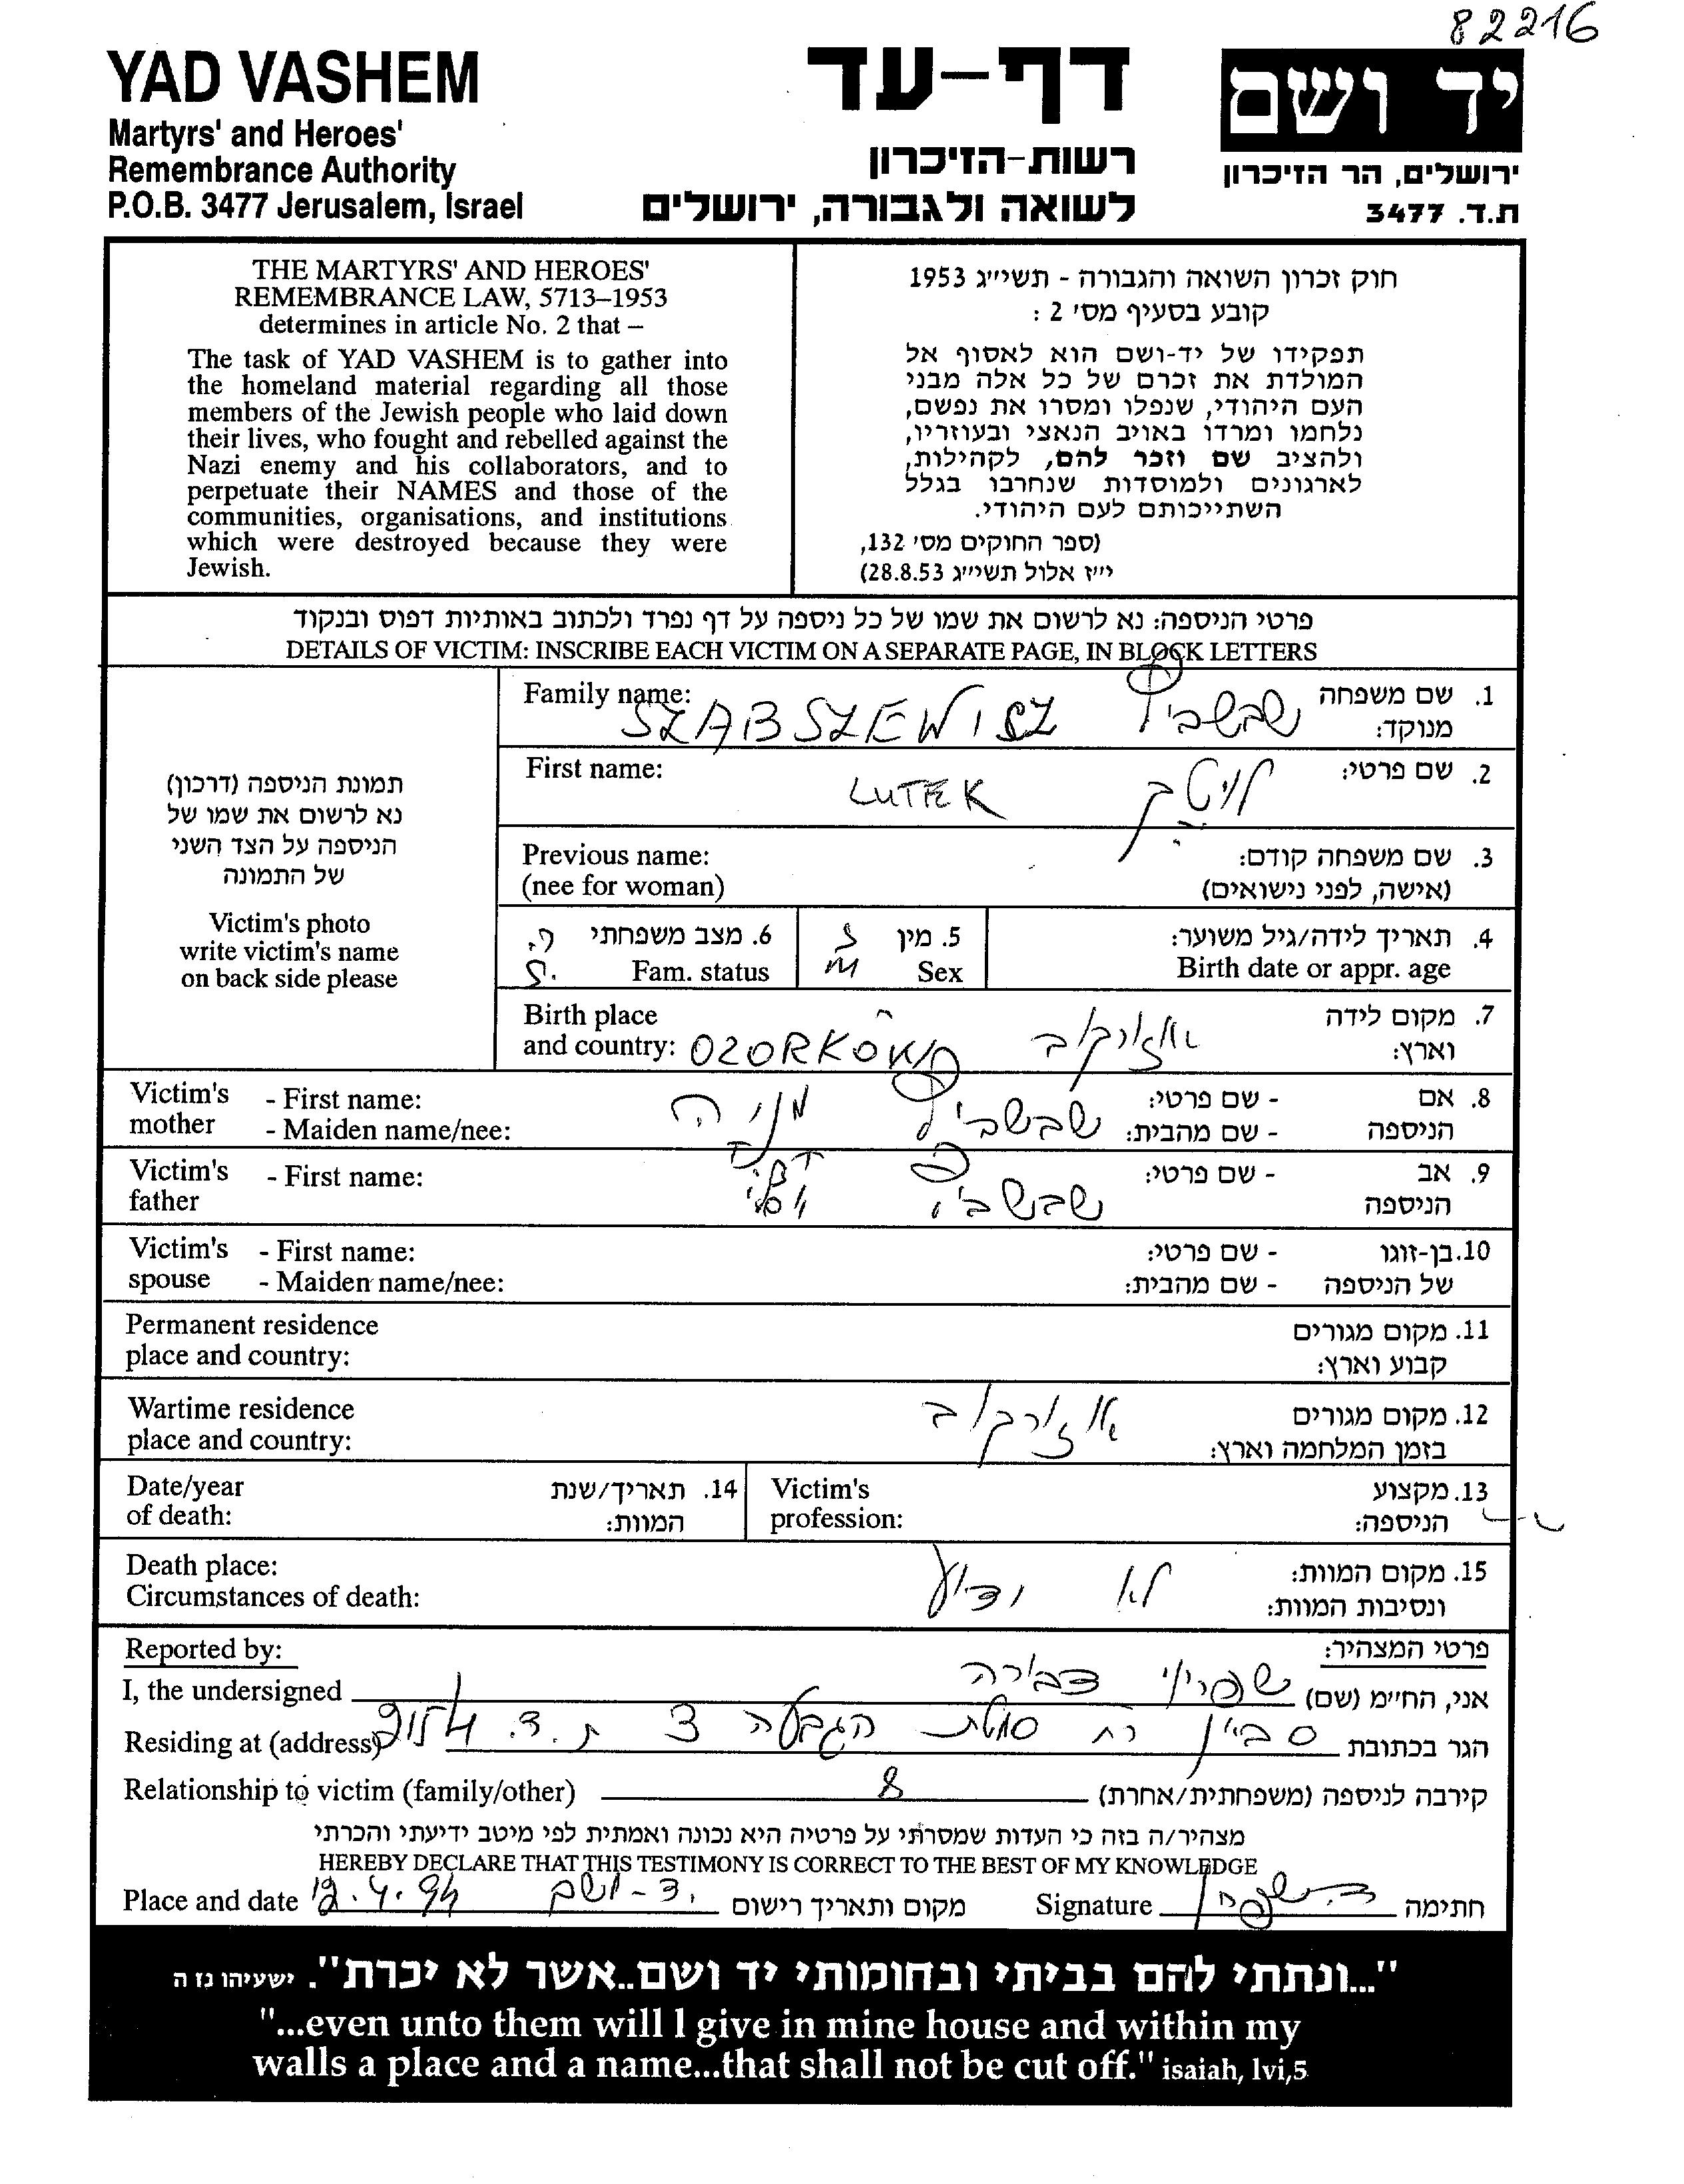 82216
YAD VASHEM
Martyrs' and Heroes'
Remembrance Authority
P.O.B. 3477 Jerusalem, Israel
דף-עד
רשות-הזיכרון
לשואה ולגבורה, ירושלים
יד ושם
ירושלים, הר הזיכרון
ת.ד. 3477
THE MARTYRS' AND HEROES'
REMEMBRANCE LAW, 5713–1953
determines in article No. 2 that –
The task of YAD VASHEM is to gather into
the homeland material regarding all those
members of the Jewish people who laid down
their lives, who fought and rebelled against the
Nazi enemy and his collaborators, and to
perpetuate their NAMES and those of the
communities, organisations, and institutions
which were destroyed because they were
Jewish.
חוק זכרון השואה והגבורה - תשי״ג 1953
קובע בסעיף מס׳ 2 :
תפקידו של יד-ושם הוא לאסוף אל
המולדת את זכרם של כל אלה מבני
העם היהודי, שנפלו ומסרו את נפשם,
נלחמו ומרדו באויב הנאצי ובעוזריו,
ולהציב שם וזכר להם, לקהילות,
לארגונים ולמוסדות שנחרבו בגלל
השתייכותם לעם היהודי.
(ספר החוקים מס׳ 132,
י״ז אלול תשי״ג 28.8.53)
פרטי הניספה: נא לרשום את שמו של כל ניספה על דף נפרד ולכתוב באותיות דפוס ובנקוד
DETAILS OF VICTIM: INSCRIBE EACH VICTIM ON A SEPARATE PAGE, IN BLOCK LETTERS
תמונת הניספה (דרכון)
נא לרשום את שמו של
הניספה על הצד השני
של התמונה
Victim's photo
write victim's name
on back side please
Family name: SZABSZEWICZ שבשביץ 1. שם משפחה
מנוקד:
First name: LUTEK לוטק 2. שם פרטי:
Previous name: 3. שם משפחה קודם:
(nee for woman) (אישה, לפני נישואים)
6. מצב משפחתי ר. 5. מין ז 4. תאריך לידה/גיל משוער:
Fam. status S. Sex M Birth date or appr. age
Birth place 7. מקום לידה
and country: OZORKÓW אוזורקוב וארץ:
Victim's - First name: מניה - שם פרטי: 8. אם
mother - Maiden name/nee: שבשביץ - שם מהבית: הניספה
Victim's - First name: שבשביץ - שם פרטי: 9. אב
father הניספה
Victim's - First name: - שם פרטי: 10. בן-זוגו
spouse - Maiden name/nee: - שם מהבית: של הניספה
Permanent residence 11. מקום מגורים
place and country: קבוע וארץ:
Wartime residence אוזורקוב 12. מקום מגורים
place and country: בזמן המלחמה וארץ:
Date/year 14. תאריך/שנת Victim's 13. מקצוע
of death: המוות: profession: הניספה:
Death place: לא ידוע 15. מקום המוות:
Circumstances of death: ונסיבות המוות:
Reported by: פרטי המצהיר:
I, the undersigned דבורה אני, החיימ (שם)
Residing at (address) סביון רח סמטת הגבעה 3 ת.ד. הגר בכתובת
Relationship to victim (family/other) קירבה לניספה (משפחתית/אחרת)
מצהיר/ה בזה כי העדות שמסרתי על פרטיה היא נכונה ואמתית לפי מיטב ידיעתי והכרתי
HEREBY DECLARE THAT THIS TESTIMONY IS CORRECT TO THE BEST OF MY KNOWLEDGE
Place and date 12.4.94 יד-ושם מקום ותאריך רישום Signature חתימה
"...ונתתי להם בביתי ובחומותי יד ושם..אשר לא יכרת". ישעיהו נז ה
"...even unto them will I give in mine house and within my
walls a place and a name...that shall not be cut off." isaiah, lvi,5